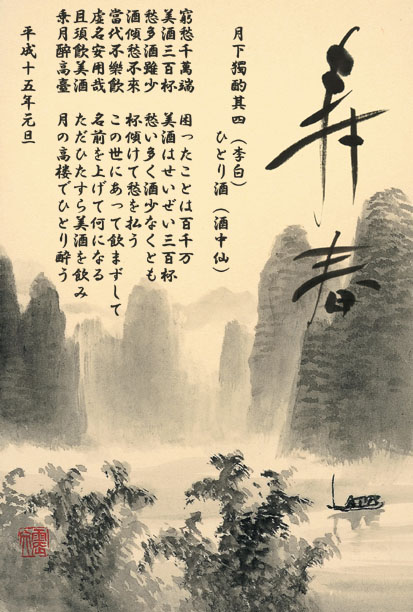 春
月下獨酌其四（李白）
ひとり酒（酒中仙）
窮愁千萬端　困ったことは百千万
美酒三百杯　美酒はせいぜい三百杯
愁多酒雖少　愁い多く酒少なくとも
酒傾愁不來　杯傾けて愁を払う
當代不樂飲　この世にあって飲まずして
虚名安用哉　名前を上げて何になる
且須飲美酒　ただひたすら美酒を飲み
乗月醉高臺　月の高楼でひとり酔う
平成十五年元旦